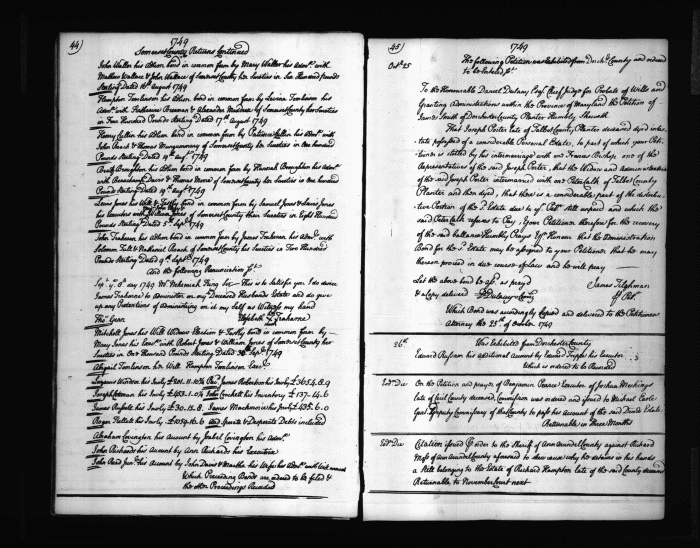 44)
1749
Somerset County Returns Continued
John Waller his Admon bond in common form by Mary Waller his Admx with
Wallace & John Wallace of Somerset County her Sureties in Six Hundred pounds
Sterling Dated 16th August 1749
Hampton Tomlinson his Admon bond in common form by Lovina Tomlinson his
Admx with Katharine & Alexander of Somerset County her Sureties
in Two Hundred Pounds Sterling Dated 17th August 1749
Henry Cullin his Admon bond in common form by Patience Cullin his Admx with
John & Thomas Montgomery of Somerset County her Sureties in One hundred
Pounds Sterling Dated 19th augt 1749
Boughton his Admon bond in common form by Hannah Boughton his Admx
with Davis & Thomas of Somerset County her Sureties in One hundred
Pounds Sterling Dated 19th augt 1749
Levin Jones his Will & Testry bond in common form by Samuel Jones & Lewis Jones
his Executors with William Jones of Somerset County their Sureties in Eight Hundred
Pounds Sterling Dated 5th Septr 1749
John Trahearn his Admon bond in common form by James Trahearn his Admr with
Solomon Tull & Nathaniel of Somerset County his Sureties in Two Hundred
Pounds Sterling Dated 9th Septr 1749
And the following Renunciation Vizt
Septr ye 8th day 1749 Mr Nehemiah King Sir This is to Satisfie you I do desire
James Trahearne to Administer on my Deceased Husbands Estate and do give
up my Pretentions of Administring on it my Self as Witness my hand
Thos Elizabeth Trahearne
Mitchell Jones his Will Widows Election & Testry bond in common form by
Mary Jones his Exx with Robert Jones & William Jones of Somerset County her
Sureties in One Thousand Pounds Sterling Dated 30th Septr 1749
Abigail Tomlinson her Will Hampton Tomlinson Exr
Lazarus Windsor his Invty £201.11.10¾ Revd James Robertson his Invty £3654.8.9
Joseph Cotman his Invty £453.1.0¾ John Crockett his Inventory £137.14.6
James Invty £30.15.8 James his Invty £435.6.0
Roger his Invty £1059.16.6 and Sperate & Desperate Debts included
Abraham Covington his Account by Isabel Covington his Admx
John Richards his Account by Ann Richards his Executrix
John Junr his Account by John Davis & Martha his Wife his Admx with Will annexed
Which Preceeding Bonds are ordered to be filed &
the other Proceedings Recorded
45)
1749
Octr 25 The following Petition was Exhibited from Dorchr County and ordered
to be Entered Vizt
To the Honorable Daniel Dulany Esqr Chief Judge for Probate of Wills and
Granting Administrations within the Province of Maryland the Petition of
James South of Dorchester County Planter Humbly Sheweth
That Joseph Porter late of Talbot County Planter deceased dyed intes-
tate possessed of a considerable Personal Estate, to part of which your Peti-
tioner is intitled by his intermarriage with one Frances Bishop one of the
Representatives of the said Joseph Porter, that the Widow and Administratrix
of the said Joseph Porter intermarried with one Peter Calk of Talbot County
Planter and then dyed, that there is a considerable part of the distribu-
tive Portion of the sd Estate due to yr Petr still unpaid and which the
said Peter Calk refuses to Pay, Your Petitioner therefore for the recovery
of the said ballance Humbly Prays Yr Honour that the administration
Bond for the sd Estate may be assigned to your Petitioner that he may
thereon proceed in due course of Law and he will pray
James Tilghman
Pr Petr
Let the above bond be assd as pray'd
& a copy delivered D Dulany
Which Bond was accordingly Copied and delivered to the Petitioners
Attorney the 25th of October 1749
26th Was Exhibited from Dorchester County
Edward Russam his additional Account by Edward Trippe his Executor
Which is ordered to be Recorded
On the Petition and prayer of Benjamin Pearce Executor of Joshua
late of Cecil County deceased, Commission was ordered and issued to Michael Earle
Gent Deputy Commissary of that County to pass his Account of the said Decds Estate
Returnable in Three Months
Citation issued by order to the Sheriff of Ann Arundel County against Richard
of Ann Arundel County aforesaid to shew cause why he detains in his hands
a Still belonging to the Estate of Richard Hampton late of the said County deceased
Returnable to November Court next